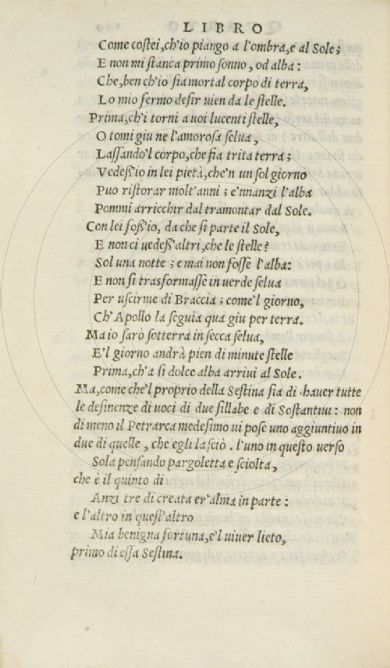 LIBRO
Come costei, ch'io piango a l'ombra, e al Sole;
E non mi stanca primo sonno, od alba:
Che, ben ch'io sia mortal corpo di terra,
Lo mio fermo desir vien da le stelle.
Prima, ch'i torni a voi lucenti stelle,
O tomi giu ne l'amorosa selva,
Lassando'l corpo, che fia trita terra;
Vedess'io in lei pietà, che'n un sol giorno
Puo ristorar molt'anni; e'nnanzi l'alba
Pommi arricchir dal tramontar dal Sole.
Con lei foss'io, da che si parte il Sole,
E non ci vedess'altri, che le stelle?
Sol una notte; e mai non fosse l'alba:
E non si trasformasse in verde selva
Per uscirme di Braccia; come'l giorno,
Ch'Apollo la seguia qua giu per terra.
Ma io sarò sotterra in secca selva,
E'l giorno andrà pien di minute stelle
Prima, ch'a si dolce alba arrivi al Sole.
Ma, come che'l proprio della Sestina sia di haver tutte
le desinenze di voci di due sillabe e di Sostantivi: non
di meno il Petrarca medesimo vi pose uno aggiuntivo in
due di quelle, che egli lasciò. l'uno in questo verso
Sola pensando pargoletta e sciolta,
che è il quinto di
Anzi tre di creata er'alma in parte:
e l'altro in quest'altro
Mia benigna fortuna, e'l viver lieto,
primo di essa Sestina.